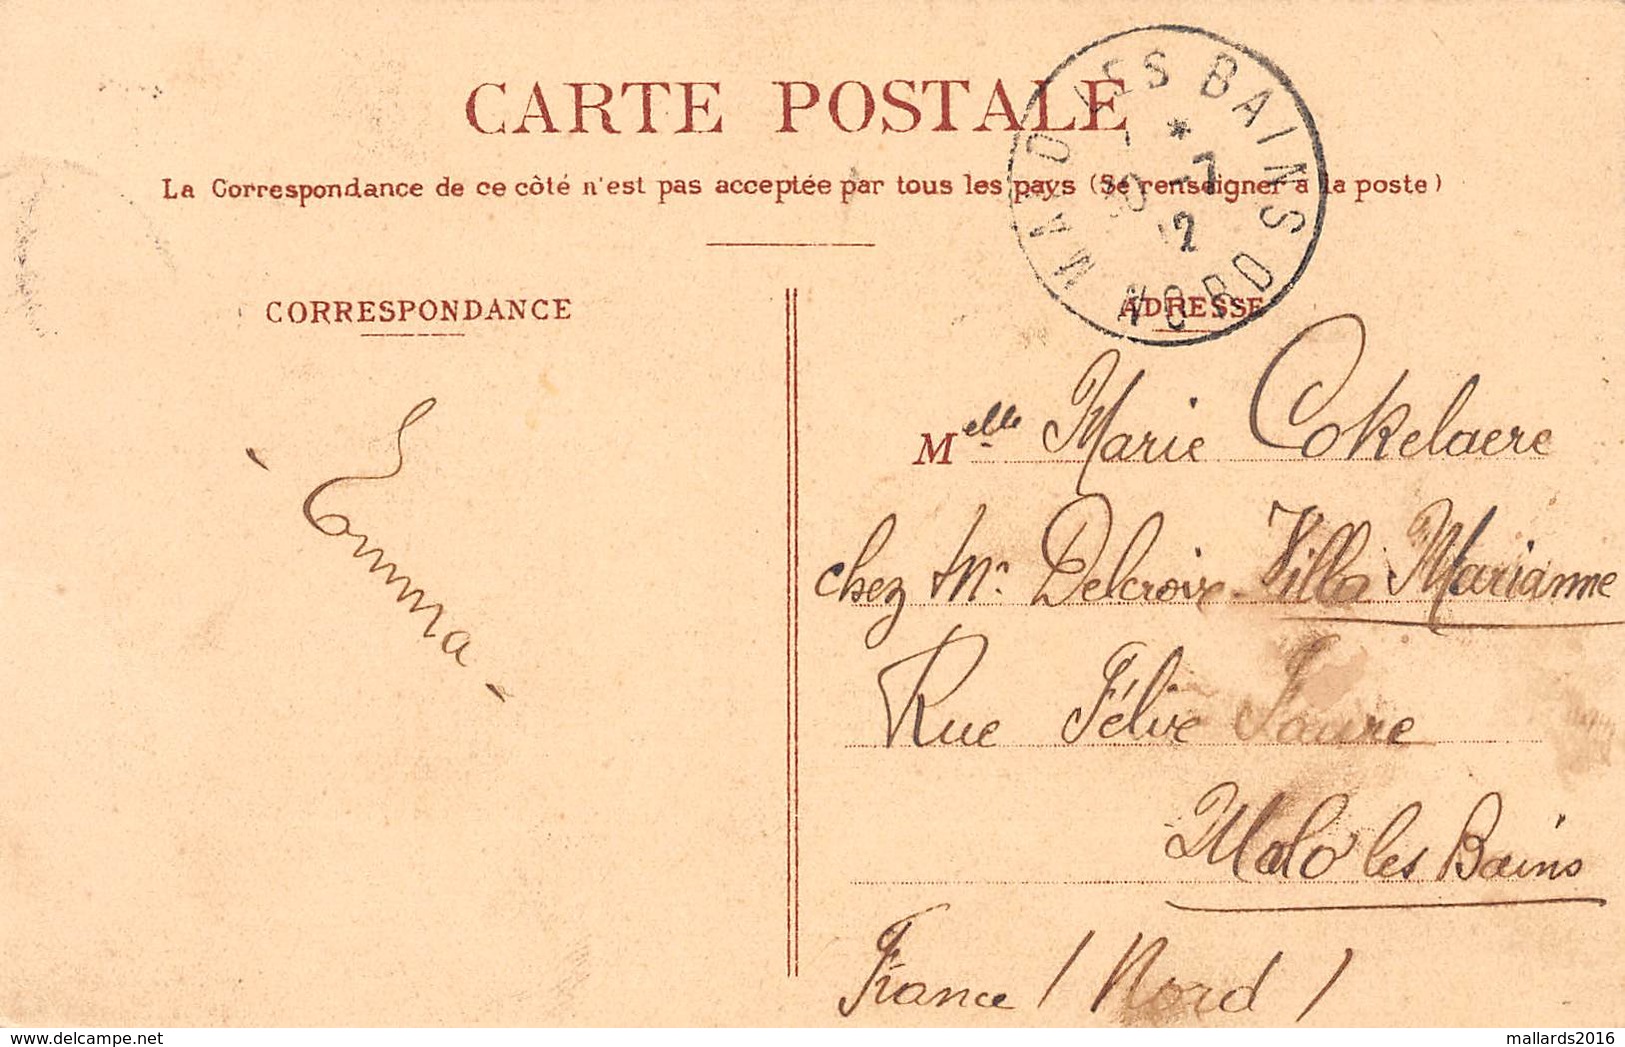 CARTE POSTALE
La Correspondance de ce côté n'est pas acceptée par tous les pays (Se renseigner à la poste)
MALO LES BAINS
* 
-7
12
NORD
CORRESPONDANCE
ADRESSE
- Emma -
Melle Marie Cokelaere
chez Mr. Delcroix - Villa Marianne
Rue Félix Faure
Malo les Bains
France / Nord /
www.delcampe.net
mallards2016